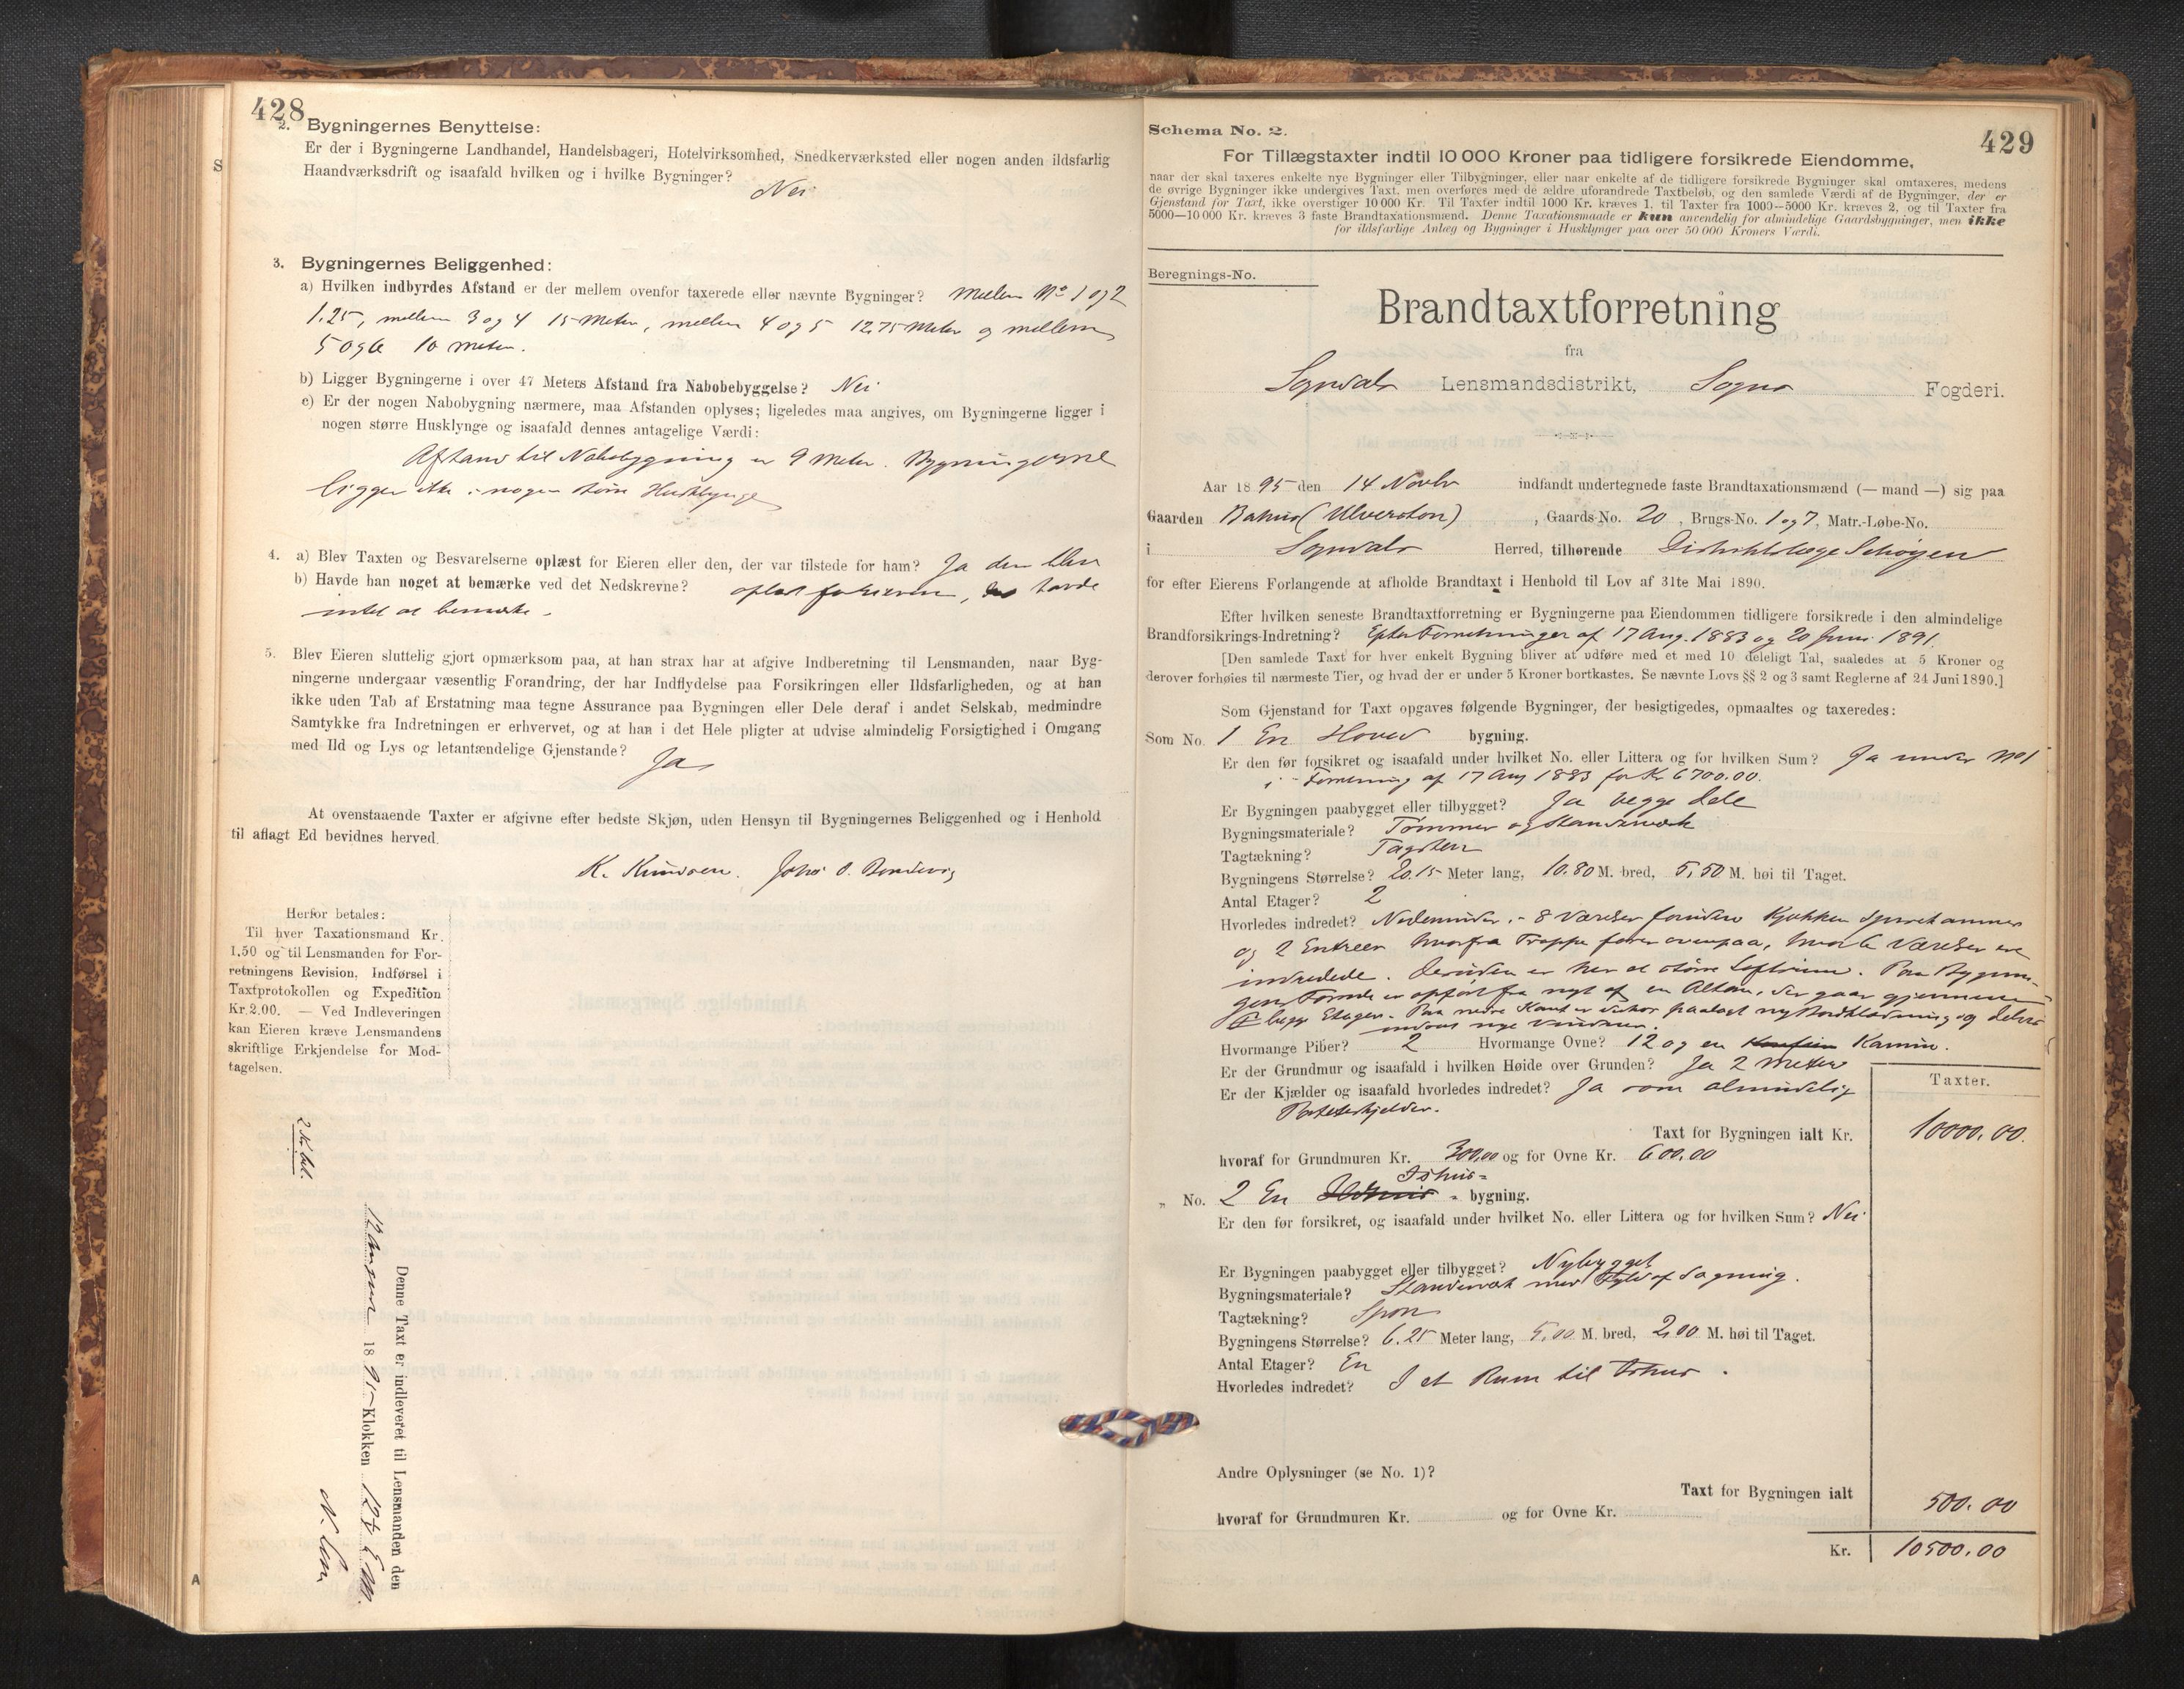 428
2. Bygningernes Benyttelse:
Er der i Bygningerne Landhandel, Handelsbageri, Hotelvirksomhed, Snedkerværksted eller nogen anden ildsfarlig
Haandværksdrift og isaafald hvilken og i hvilke Bygninger?
Nei
3. Bygningernes Beliggenhed:
a) Hvilken indbyrdes Afstand er der mellem ovenfor taxerede eller nævnte Bygninger? Mellem No 1 og 2
1.25, mellem 3 og 4 15 Meter, mellem 4 og 5 12.75 Meter og mellem
5 og 6 10 Meter.
b) Ligger Bygningerne i over 47 Meters Afstand fra Nabobebyggelse? Nei
c) Er der nogen Nabobygning nærmere, maa Afstanden oplyses; ligeledes maa angives, om Bygningerne ligger i
nogen større Husklynge og isaafald dennes antagelige Værdi:
Afstand til Nabobygning er 9 Meter. Bygningerne
ligger ikke i nogen større Husklynge
4. a) Blev Taxten og Besvarelserne oplæst for Eieren eller den, der var tilstede for ham? Ja den blev
b) Havde han noget at bemærke ved det Nedskrevne? oplæst for Eieren, der havde
intet at bemærke.
5. Blev Eieren sluttelig gjort opmærksom paa, at han strax har at afgive Indberetning til Lensmanden, naar Byg-
ningerne undergaar væsentlig Forandring, der har Indflydelse paa Forsikringen eller Ildsfarligheden, og at han
ikke uden Tab af Erstatning maa tegne Assurance paa Bygningen eller Dele deraf i andet Selskab, medmindre
Samtykke fra Indretningen er erhvervet, og at han i det Hele pligter at udvise almindelig Forsigtighed i Omgang
med Ild og Lys og letantændelige Gjenstande?
Ja
At ovenstaaende Taxter er afgivne efter bedste Skjøn, uden Hensyn til Bygningernes Beliggenhed og i Henhold
til aflagt Ed bevidnes herved.
K. Knudsen. Johs O.
Herfor betales:
Til hver Taxationsmand Kr.
1.50 og til Lensmanden for For-
retningens Revision, Indførsel i
Taxtprotokollen og Expedition
Kr. 2.00. — Ved Indleveringen
kan Eieren kræve Lensmandens
skriftlige Erkjendelse for Mod-
tagelsen.
2 Kr. bet.
Denne Taxt er indleveret til Lensmanden den
12 August 1895 Klokken 12 1/2 E.M.
429
Schema No. 2.
For Tillægstaxter indtil 10 000 Kroner paa tidligere forsikrede Eiendomme,
naar der skal taxeres enkelte nye Bygninger eller Tilbygninger, eller naar enkelte af de tidligere forsikrede Bygninger skal omtaxeres, medens
de øvrige Bygninger ikke undergives Taxt, men overføres med de ældre uforandrede Taxtbeløb, og den samlede Værdi af de Bygninger, der er
Gjenstand for Taxt, ikke overstiger 10 000 Kr. Til Taxter indtil 1000 Kr. kræves 1, til Taxter fra 1000—5000 Kr. kræves 2, og til Taxter fra
5000—10 000 Kr. kræves 3 faste Brandtaxationsmænd. Denne Taxationsmaade er kun anvendelig for almindelige Gaardsbygninger, men ikke
for ildsfarlige Anlæg og Bygninger i Husklynger paa over 50 000 Kroners Værdi.
Beregnings-No.
Brandtaxtforretning
fra
Sogndals Lensmandsdistrikt, Sogns Fogderi.
Aar 1895 den 14 Novbr indfandt undertegnede faste Brandtaxationsmænd (— mand —) sig paa
Gaarden Bahus (Ulveraton), Gaards-No. 20, Brugs-No. 1 og 7, Matr.-Løbe-No.
i Sogndals Herred, tilhørende Distriktslæge Schøyen
for efter Eierens Forlangende at afholde Brandtaxt i Henhold til Lov af 31te Mai 1890.
Efter hvilken seneste Brandtaxtforretning er Bygningerne paa Eiendommen tidligere forsikrede i den almindelige
Brandforsikrings-Indretning? Efter Forretninger af 17 Aug. 1883 og 20 Juni 1891.
[Den samlede Taxt for hver enkelt Bygning bliver at udføre med et med 10 deleligt Tal, saaledes at 5 Kroner og
derover forhøies til nærmeste Tier, og hvad der er under 5 Kroner bortkastes. Se nævnte Lovs §§ 2 og 3 samt Reglerne af 24 Juni 1890.]
Som Gjenstand for Taxt opgaves følgende Bygninger, der besigtigedes, opmaaltes og taxeredes:
Som No. 1 En Hoved bygning.
Er den før forsikret og isaafald under hvilket No. eller Littera og for hvilken Sum? Ja under No 1
i Forretning af 17 Aug 1883 for Kr 6700.00.
Er Bygningen paabygget eller tilbygget? Ja begge Dele
Bygningsmateriale? Tømmer og Standerværk
Tagtækning? Tagsten
Bygningens Størrelse? 20.15 Meter lang, 10.80 M. bred, 5,50 M. høi til Taget.
Antal Etager? 2
Hvorledes indredet? Nedenunder i 8 Værelser foruden Kjøkken Spisekammer
og 2 Entreer hvorfra Trappe fører ovenpaa, hvor 6 Værelser ere
indredede. Desuden er her et større Loftsrum. Paa Bygnin-
gens Forside er opført fra nyt af en Altan, der gaar gjennem
begge Etager. Paa nedre Kant er videre paalagt ny Bordklædning og delvis
indsat nye Vinduer.
Hvormange Piber? 2 Hvormange Ovne? 12 og en Kamin.
Er der Grundmur og isaafald i hvilken Høide over Grunden? Ja 2 Meter
Er der Kjælder og isaafald hvorledes indredet? Ja som almindelig
Potetskjelder.
Taxter.
Taxt for Bygningen ialt Kr. 10000.00.
hvoraf for Grundmuren Kr. 300,00 og for Ovne Kr. 600.00
Ishus-
„ No. 2 En bygning.
Er den før forsikret, og isaafald under hvilket No. eller Littera og for hvilken Sum? Nei
Er Bygningen paabygget eller tilbygget? Nybygget
Bygningsmateriale? Standerværk med Fyld af Sagmug.
Tagtækning? Spon
Bygningens Størrelse? 6.25 Meter lang, 5,00 M. bred, 2,00 M. høi til Taget.
Antal Etager? En
Hvorledes indredet? I et Rum til Ishus.
Andre Oplysninger (se No. 1)?
Taxt for Bygningen ialt 500.00
hvoraf for Grundmuren Kr. og for Ovne Kr.
Kr. 10500.00